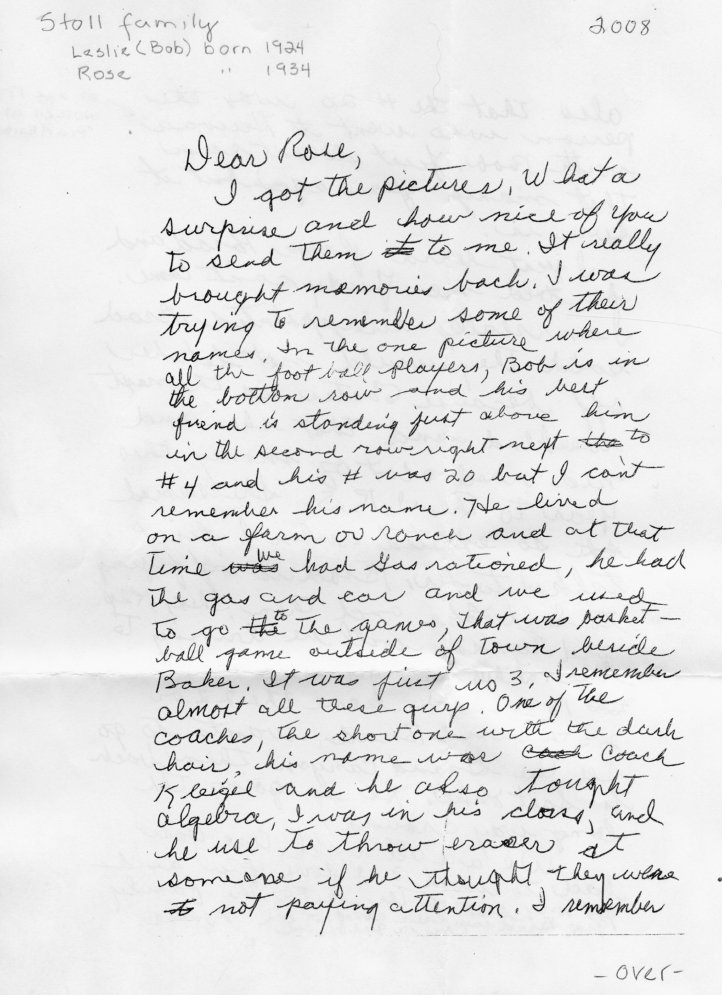 Stoll family
2008
Leslie (Bob) born 1924
Rose " 1934
Dear Rose,
I got the pictures, What a
surprise and how nice of you
to send them it to me. It really
brought memories back. I was
trying to remember some of their
names. In the one picture where
all the football players, Bob is in
the bottom row and his best
friend is standing just above him
in the second row right next the to
#4 and his # was 20 but I can't
remember his name. He lived
on a farm or ranch and at that
time was we had gas rationed, he had
the gas and car and we used
to go the to the games, That was basket-
ball game outside of town beside
Baker. It was just us 3. I remember
almost all these guys. One of the
coaches, the short one with the dark
hair, his name was coach Coach
Kleigel and he also tought
algebra, I was in his class, and
he use to throw eraser at
someone if he thought they were
to not paying attention. I remember
-over-